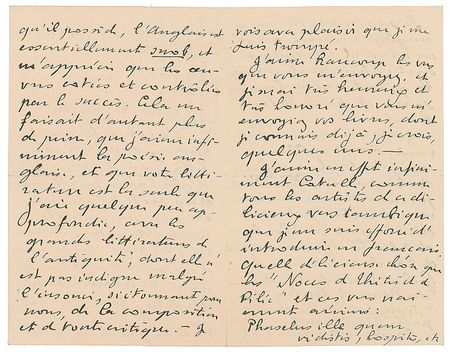 qu'il possède, l'Anglais est
essentiellement snob, et
n'apprécie que les œu-
vres cotées et contrôlées
par le succès. Cela me
faisait d'autant plus
de peine, que j'aime infi-
niment la poésie an-
glaise, et que votre litté-
rature est la seule que
j'aie quelque peu ap-
profondie, avec les
grandes littératures de
l'antiquité, dont elle n'
est pas indigne malgré
l'insouci, si étonnant pour
nous, de la composition
et de toute critique. — Je
vois avec plaisir que je me
suis trompé.
J'aime beaucoup les vers
que vous m'envoyez, et
je serai très heureux et
très honoré que vous m'
envoyiez vos livres, dont
je connais déjà, je crois,
quelques uns —
J'aime en effet infini-
ment Catulle, comme
tous les artistes de ce dé-
licieux vers ïambique
que je me suis efforcé d'
introduire en français.
Quelle délicieuse chose que
les "Noces de Thétis et de
Pélée" et ces vers vrai-
ment ailés :
Phaselus ille quem
videtis, hospites, etc